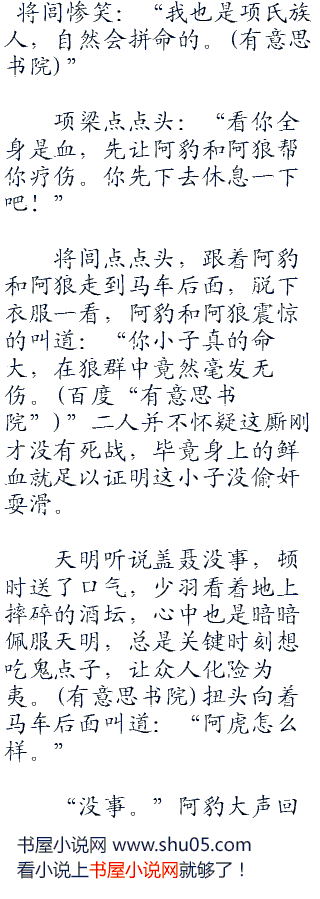 将闾惨笑：“我也是项氏族
人，自然会拼命的。(有意思
书院)”
项梁点点头：“看你全
身是血，先让阿豹和阿狼帮
你疗伤。你先下去休息一下
吧！”
将闾点点头，跟着阿豹
和阿狼走到马车后面，脱下
衣服一看，阿豹和阿狼震惊
的叫道：“你小子真的命
大，在狼群中竟然毫发无
伤。(百度“有意思书
院”)”二人并不怀疑这厮刚
才没有死战，毕竟身上的鲜
血就足以证明这小子没偷奸
耍滑。
天明听说盖聂没事，顿
时送了口气，少羽看着地上
摔碎的酒坛，心中也是暗暗
佩服天明，总是关键时刻想
吃鬼点子，让众人化险为
夷。(有意思书院)扭头向着
马车后面叫道：“阿虎怎么
样。”
“没事。”阿豹大声回
书屋小说网 www.shu05.com
看小说上书屋小说网就够了！